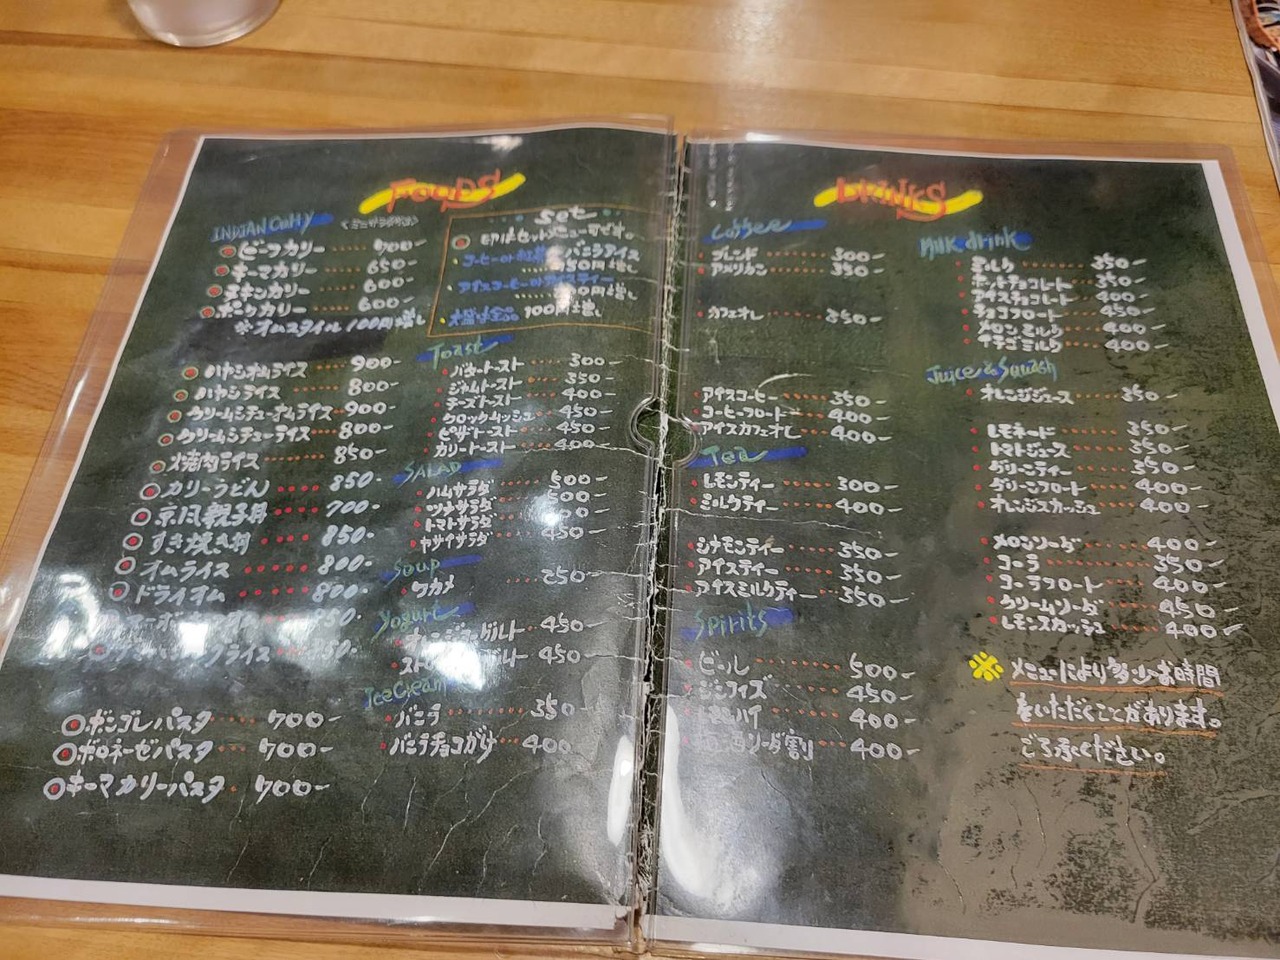 FOODS
INDIAN CURRY
ビーフカリー ····· 700-
キーマカリー ····· 650-
チキンカリー ····· 600-
ポークカリー ····· 600-
※オムスタイル 100円増し
ハヤシオムライス ··· 900-
ハヤシライス ···· 800-
クリームシチューオムライス ·· 900-
クリームシチューライス ··· 800-
焼肉ライス ···· 850-
カリーうどん ···· 850-
京風親子丼 ···· 700-
すき焼き丼 ···· 850-
オムライス ····· 800-
ドライオム ······ 800-
ボンゴレパスタ ···· 700-
ボロネーゼパスタ ··· 700-
キーマカリーパスタ · 700-
set
印はセットメニューです。
バニラアイス
大盛は全品 100円増し
Toast
バタートースト ···· 300-
ジャムトースト ···· 350-
チーズトースト ···· 400-
クロックムッシュ ··· 450-
ピザトースト ···· 450-
カリートースト ···· 400-
SALAD
ハムサラダ ···· 500-
ツナサラダ ···· 500-
トマトサラダ
ヤサイサラダ ···· 400-
Soup
ワカメ ···· 250-
Yogurt
450-
450-
Ice Cream
バニラ ···· 350-
バニラチョコがけ ··· 400-
DRINKS
Coffee
ブレンド ······ 300-
アメリカン ····· 350-
カフェオレ ····· 350-
アイスコーヒー ···· 350-
コーヒーフロート ··· 400-
アイスカフェオレ ··· 400-
Tea
レモンティー ···· 300-
ミルクティー ···· 400-
シナモンティー ···· 350-
アイスティー ····· 350-
アイスミルクティー ··· 350-
Spirits
ビール ······· 500-
ジンフィズ ····· 450-
400-
400-
Milk drink
ミルク ······ 350-
ホットチョコレート ·· 350-
アイスチョコレート ·· 400-
チョコフロート ··· 450-
メロンミルク ···· 400-
イチゴミルク ···· 400-
Juice & Squash
オレンジジュース ··· 350-
レモネード ····· 350-
トマトジュース ···· 350-
グリーンティー ···· 350-
グリーンフロート ··· 400-
オレンジスカッシュ ·· 400-
メロンソーダ ···· 400-
コーラ ······ 350-
コーラフロート ··· 400-
クリームソーダ ··· 450-
レモンスカッシュ ·· 400-
※ メニューにより多少お時間
をいただくことがあります。
ご了承ください。